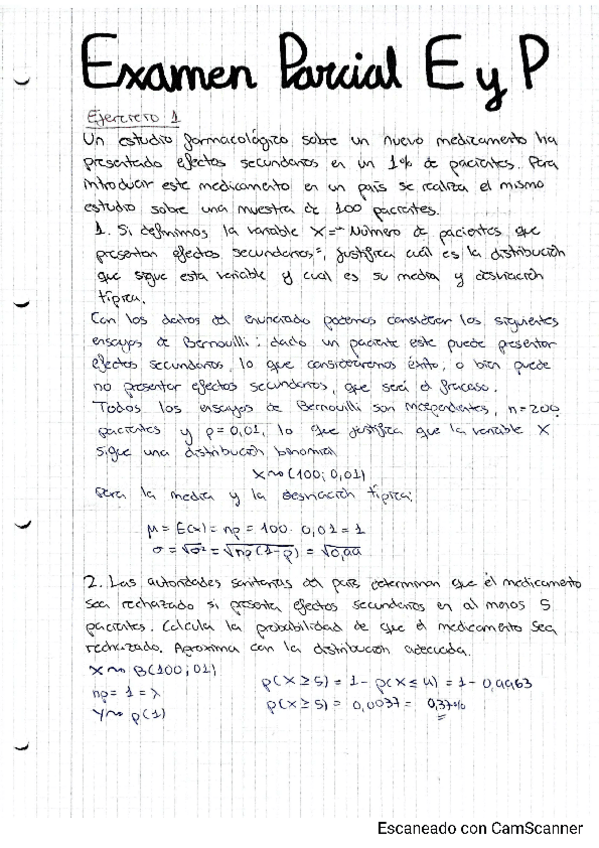 Examen Parcial E y P
Ejercicio 1
Un estudio farmacológico sobre un nuevo medicamento ha
presentado efectos secundarios en un 1% de pacientes. Para
introducir este medicamento en un país se realiza el mismo
estudio sobre una muestra de 100 pacientes.
1. Si definimos la variable X="Número de pacientes que
presentan efectos secundarios", justifica cuál es la distribución
que sigue esta variable y cual es su media y desviación
típica.
Con los datos del enunciado podemos considerar los siguientes
ensayos de Bernoulli: dado un paciente este puede presentar
efectos secundarios, lo que consideraremos éxito, o bien puede
no presentar efectos secundarios, que será el fracaso.
Todos los ensayos de Bernoulli son independientes, n=200
pacientes y p=0,01, lo que justifica que la variable X
sigue una distribución binomial
X~(100; 0,01)
Para la media y la desviación típica:
μ = E(x) = np = 100 · 0,01 = 1
σ = √σ² = √np(1-p) = √0,99
2. Las autoridades sanitarias del país determinan que el medicamento
sea rechazado si presenta efectos secundarios en al menos 5
pacientes. Calcula la probabilidad de que el medicamento sea
rechazado. Aproxima con la distribución adecuada.
X~B(100; 01)
np = 1 = λ
Y~P(1)
P(X≥5) = 1 - P(X≤4) = 1 - 0,9963
P(X≥5) = 0,0037 = 0,37%
Escaneado con CamScanner